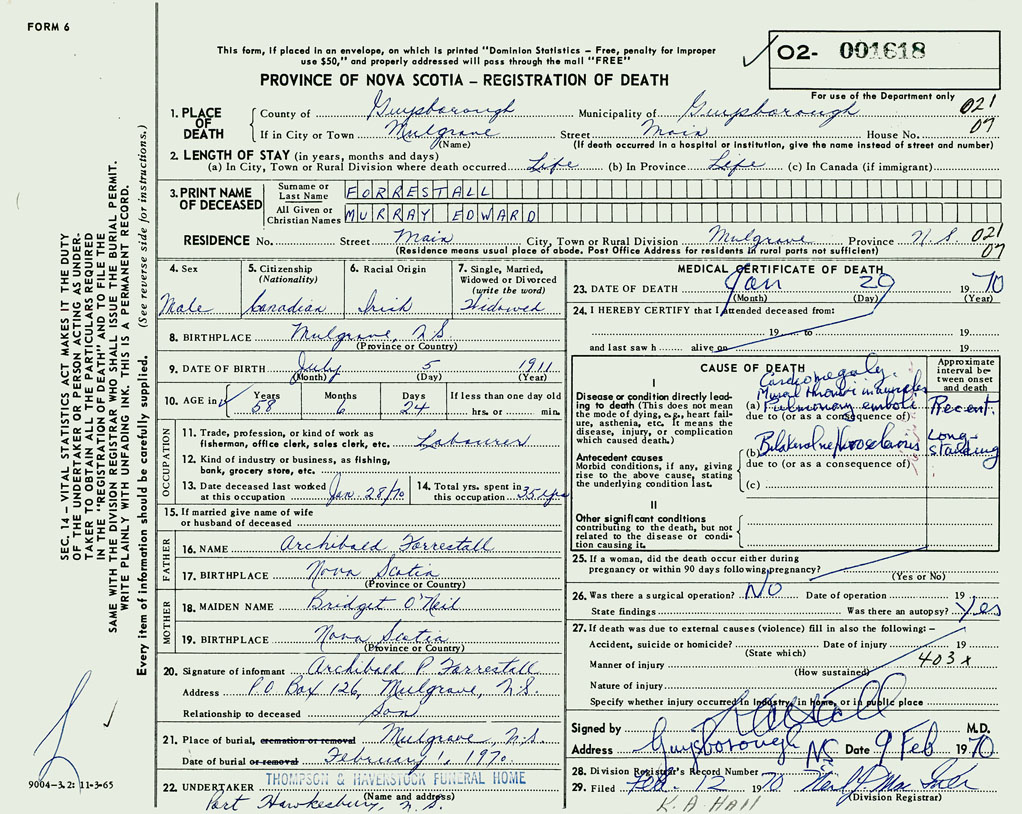 FORM 6
This form, if placed in an envelope, on which is printed "Dominion Statistics – Free, penalty for improper
use $50," and properly addressed will pass through the mail "FREE"
O2- 001618
PROVINCE OF NOVA SCOTIA – REGISTRATION OF DEATH
For use of the Department only
021
07
1. PLACE OF DEATH
County of Guysborough Municipality of Guysborough
If in City or Town Mulgrave Street Main House No.
(Name) (If death occurred in a hospital or institution, give the name instead of street and number)
2. LENGTH OF STAY (in years, months and days)
(a) In City, Town or Rural Division where death occurred Life (b) In Province Life (c) In Canada (if immigrant)
3. PRINT NAME OF DECEASED
Surname or Last Name FORRESTALL
All Given or Christian Names MURRAY EDWARD
RESIDENCE No. Street Main City, Town or Rural Division Mulgrave Province N.S. 021
(Residence means usual place of abode. Post Office Address for residents in rural parts not sufficient) 07
4. Sex
Male
5. Citizenship
(Nationality)
Canadian
6. Racial Origin
Irish
7. Single, Married,
Widowed or Divorced
(write the word)
Widowed
8. BIRTHPLACE Mulgrave, N.S.
(Province or Country)
9. DATE OF BIRTH July 5 1911
(Month) (Day) (Year)
10. AGE in Years Months Days If less than one day old
58 6 24 hrs. or min.
OCCUPATION
11. Trade, profession, or kind of work as
fisherman, office clerk, sales clerk, etc. Labourer
12. Kind of industry or business, as fishing,
bank, grocery store, etc.
13. Date deceased last worked
at this occupation Jan. 28/70
14. Total yrs. spent in
this occupation 35 yrs
15. If married give name of wife
or husband of deceased
FATHER
16. NAME Archibald Forrestall
17. BIRTHPLACE Nova Scotia
(Province or Country)
MOTHER
18. MAIDEN NAME Bridget O'Neil
19. BIRTHPLACE Nova Scotia
(Province or Country)
20. Signature of informant Archibald P Forrestall
Address P.O. Box 126, Mulgrave, N.S.
Relationship to deceased Son
21. Place of burial, cremation or removal Mulgrave N.S.
Date of burial or removal February 1, 1970
THOMPSON & HAVERSTOCK FUNERAL HOME
22. UNDERTAKER (Name and address)
Port Hawkesbury, N.S.
MEDICAL CERTIFICATE OF DEATH
23. DATE OF DEATH Jan 29 1970
(Month) (Day) (Year)
24. I HEREBY CERTIFY that I attended deceased from:
19 to 19
and last saw h alive on 19
CAUSE OF DEATH
Approximate
interval be-
tween onset
and death
I
Disease or condition directly lead-
ing to death (This does not mean
the mode of dying, e.g., heart fail-
ure, asthenia, etc. It means the
disease, injury, or complication
which caused death.)
Cardiomegaly.
Mural thrombi in auricles
(a) Pulmonary emboli Recent.
due to (or as a consequence of)
Antecedent causes
Morbid conditions, if any, giving
rise to the above cause, stating
the underlying condition last.
(b) Bilateral nephrosclerosis Long-standing
due to (or as a consequence of)
(c)
II
Other significant conditions
contributing to the death, but not
related to the disease or condi-
tion causing it.
25. If a woman, did the death occur either during
pregnancy or within 90 days following pregnancy?
(Yes or No)
26. Was there a surgical operation? NO Date of operation 19
State findings Was there an autopsy? Yes
27. If death was due to external causes (violence) fill in also the following: –
Accident, suicide or homicide? Date of injury 19
(State which)
Manner of injury 403 x
(How sustained)
Nature of injury
Specify whether injury occurred in industry, in home, or in public place
Signed by M.D.
Address Guysborough NS Date 9 Feb 1970
28. Division Registrar's Record Number
29. Filed Feb. 12 1970
(Division Registrar)
K. A Hall
SEC. 14 – VITAL STATISTICS ACT MAKES IT THE DUTY
OF THE UNDERTAKER OR PERSON ACTING AS UNDER-
TAKER TO OBTAIN ALL THE PARTICULARS REQUIRED
IN THE "REGISTRATION OF DEATH" AND TO FILE THE
SAME WITH THE DIVISION REGISTRAR WHO SHALL ISSUE THE BURIAL PERMIT.
WRITE PLAINLY WITH UNFADING INK. THIS IS A PERMANENT RECORD.
Every item of information should be carefully supplied. (See reverse side for instructions.)
9004–3.2: 11-3-65